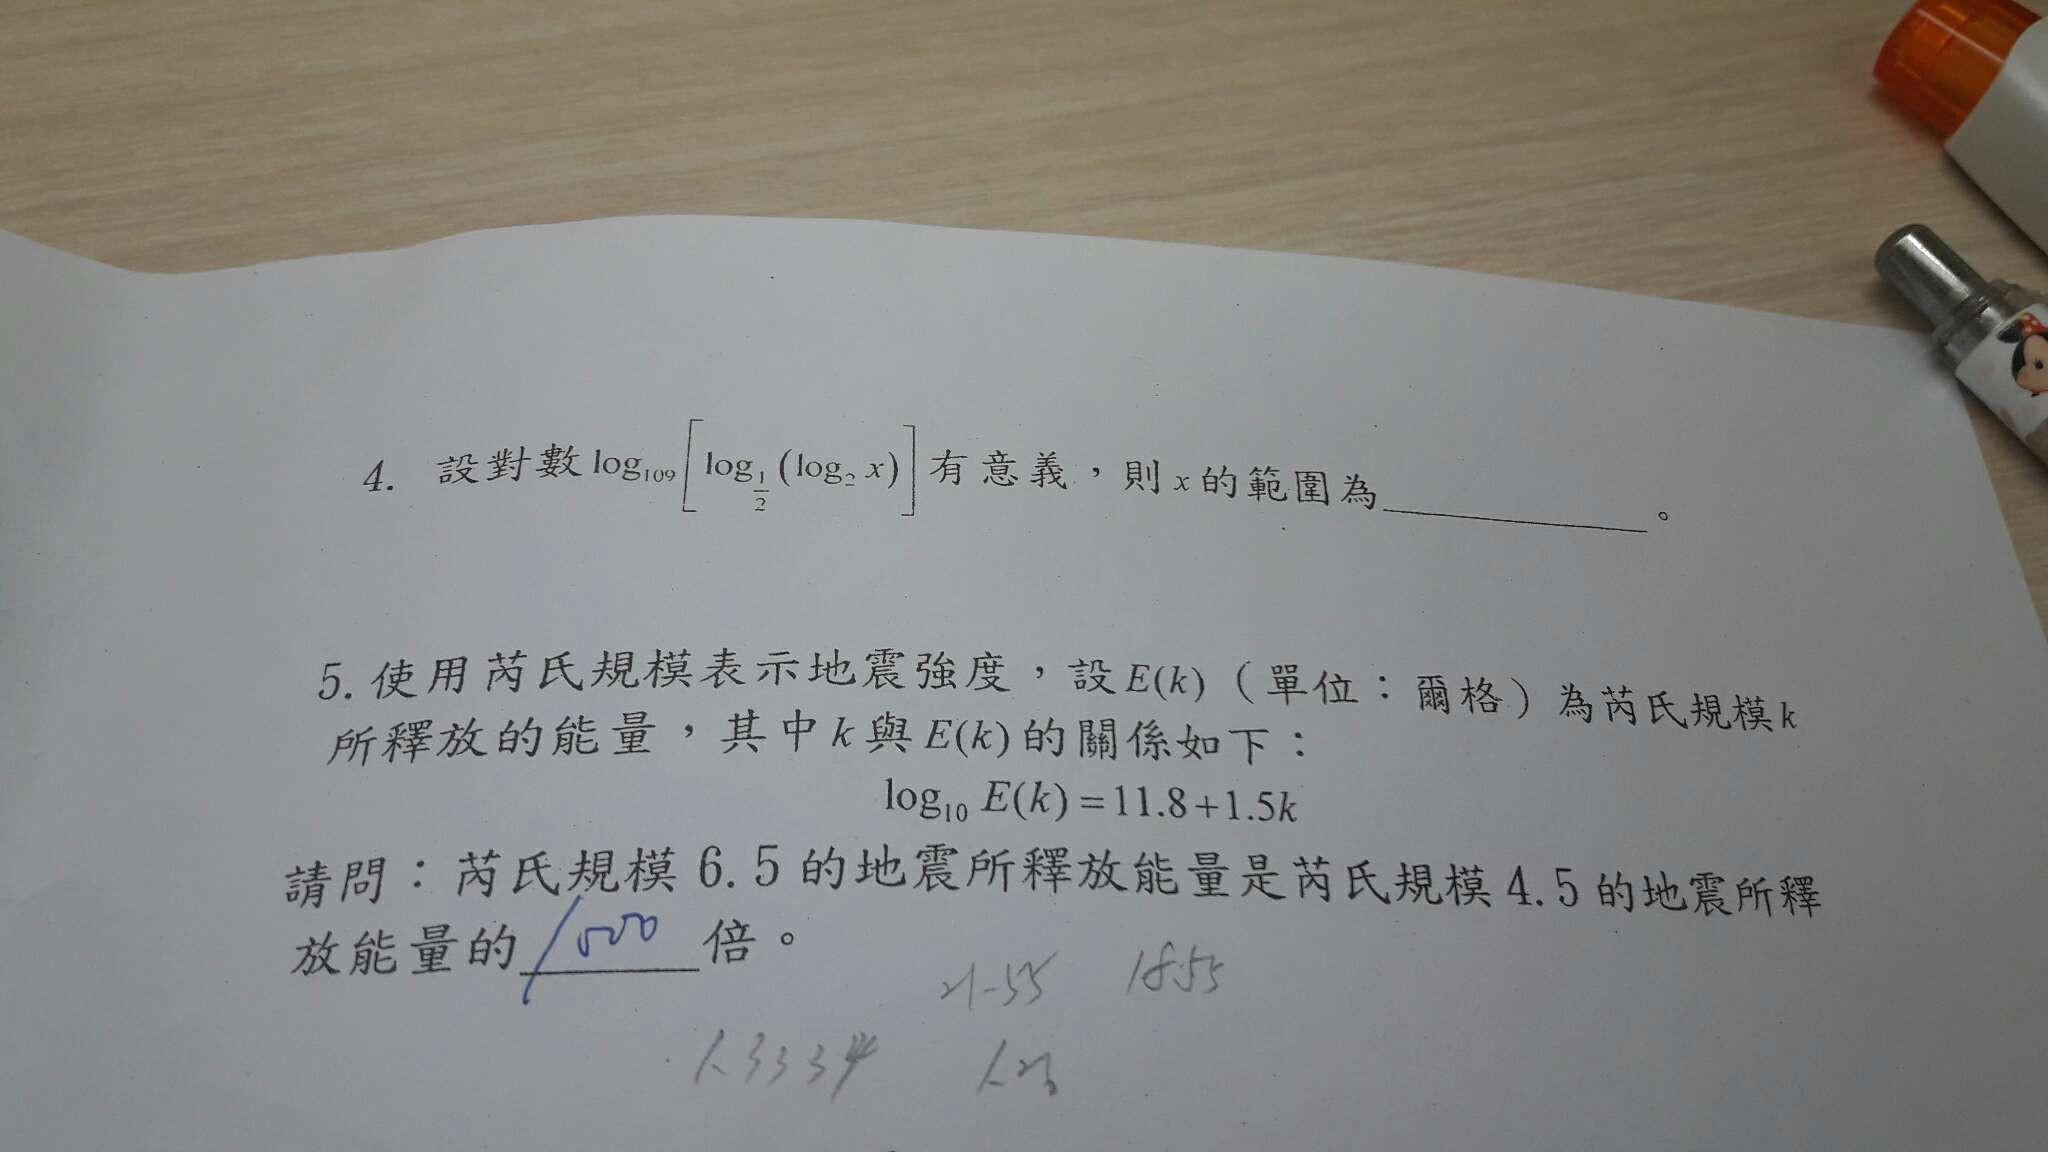 4. 設對數 log₁₀₉[log_{1/2}(log₂ x)] 有意義，則 x 的範圍為__________。
5. 使用芮氏規模表示地震強度，設 E(k)（單位：爾格）為芮氏規模k
所釋放的能量，其中 k 與 E(k) 的關係如下：
log₁₀ E(k) = 11.8 + 1.5k
請問：芮氏規模 6.5 的地震所釋放能量是芮氏規模 4.5 的地震所釋
放能量的 1000 倍。
21.55 18.55
1.3334